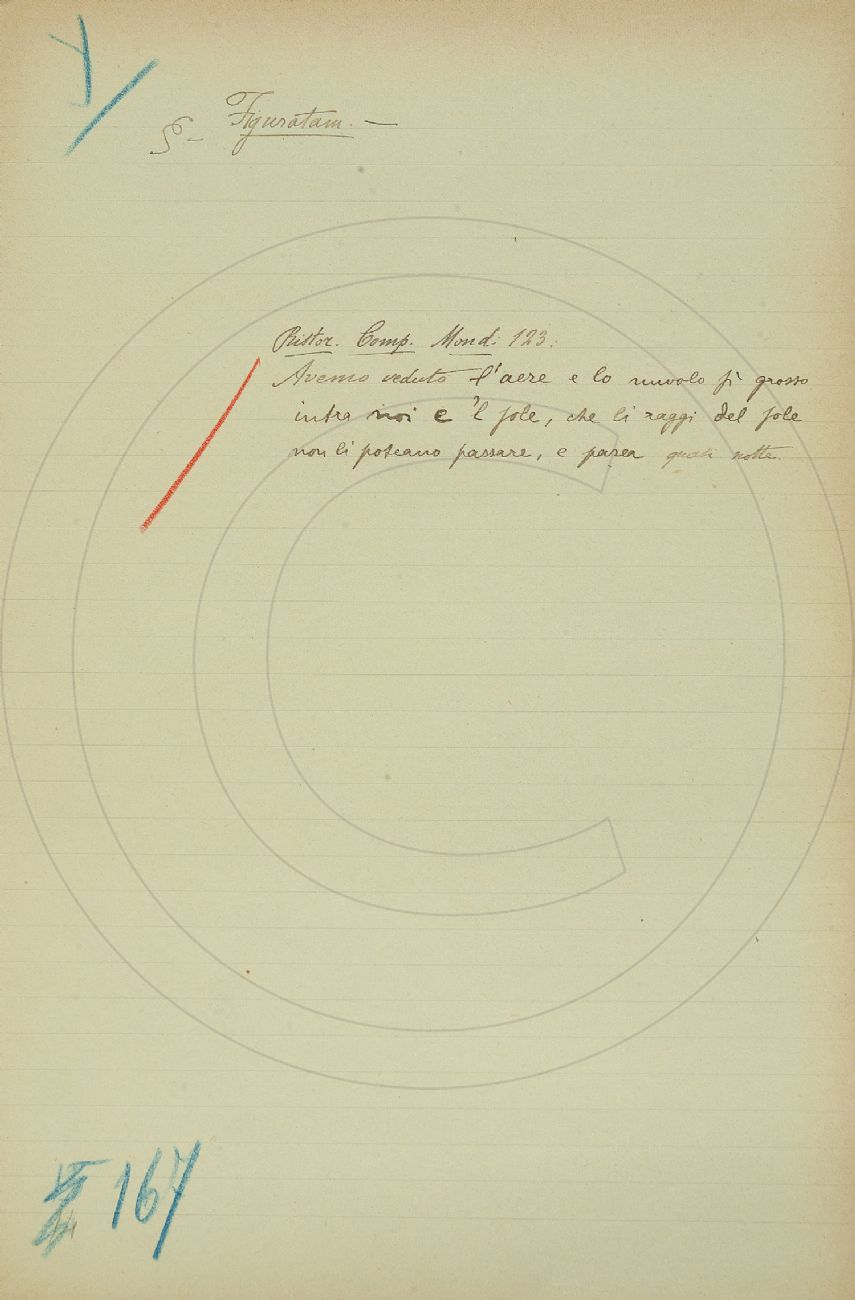 § - Figuratam. -
Ristor. Comp. Mond. 123:
Avemo veduto l'aere e lo nuvolo sì grosso
intra noi e 'l sole, che li raggi del sole
non li poteano passare, e parea quasi notte.
167